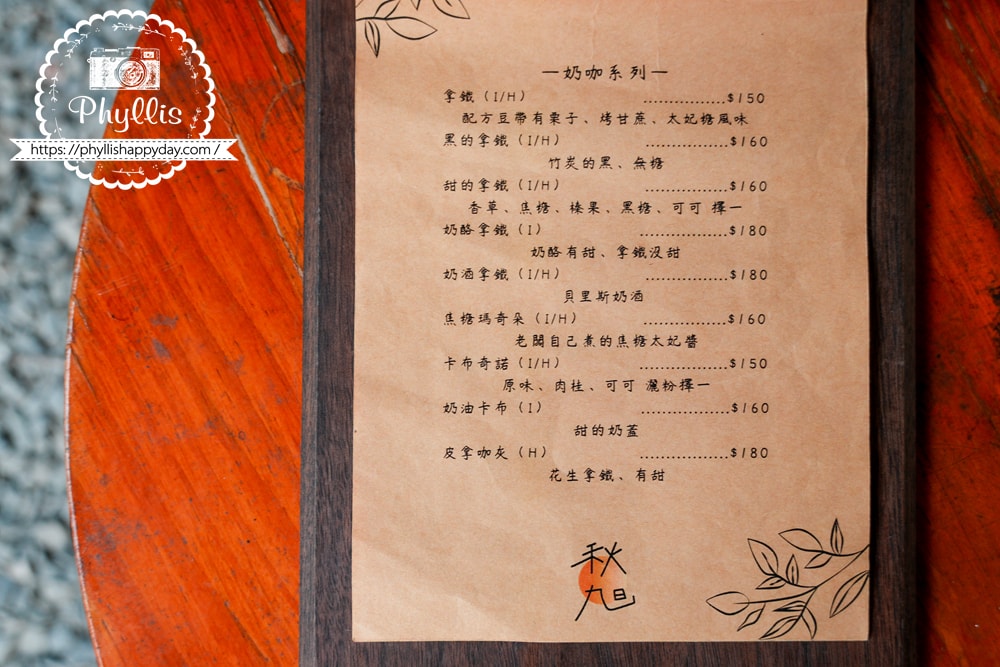 Phyllis
https://phyllishappyday.com/
—奶咖系列—
拿鐵（I/H）................$150
配方豆帶有栗子、烤甘蔗、太妃糖風味
黑的拿鐵（I/H）................$160
竹炭的黑、無糖
甜的拿鐵（I/H）................$160
香草、焦糖、榛果、黑糖、可可 擇一
奶酪拿鐵（I）.................$180
奶酪有甜、拿鐵沒甜
奶酒拿鐵（I/H）................$180
貝里斯奶酒
焦糖瑪奇朵（I/H）................$160
老闆自己煮的焦糖太妃醬
卡布奇諾（I/H）.................$150
原味、肉桂、可可 灑粉擇一
奶油卡布（I）.................$160
甜的奶蓋
皮拿咖灰（H）.................$180
花生拿鐵、有甜
秋
旭